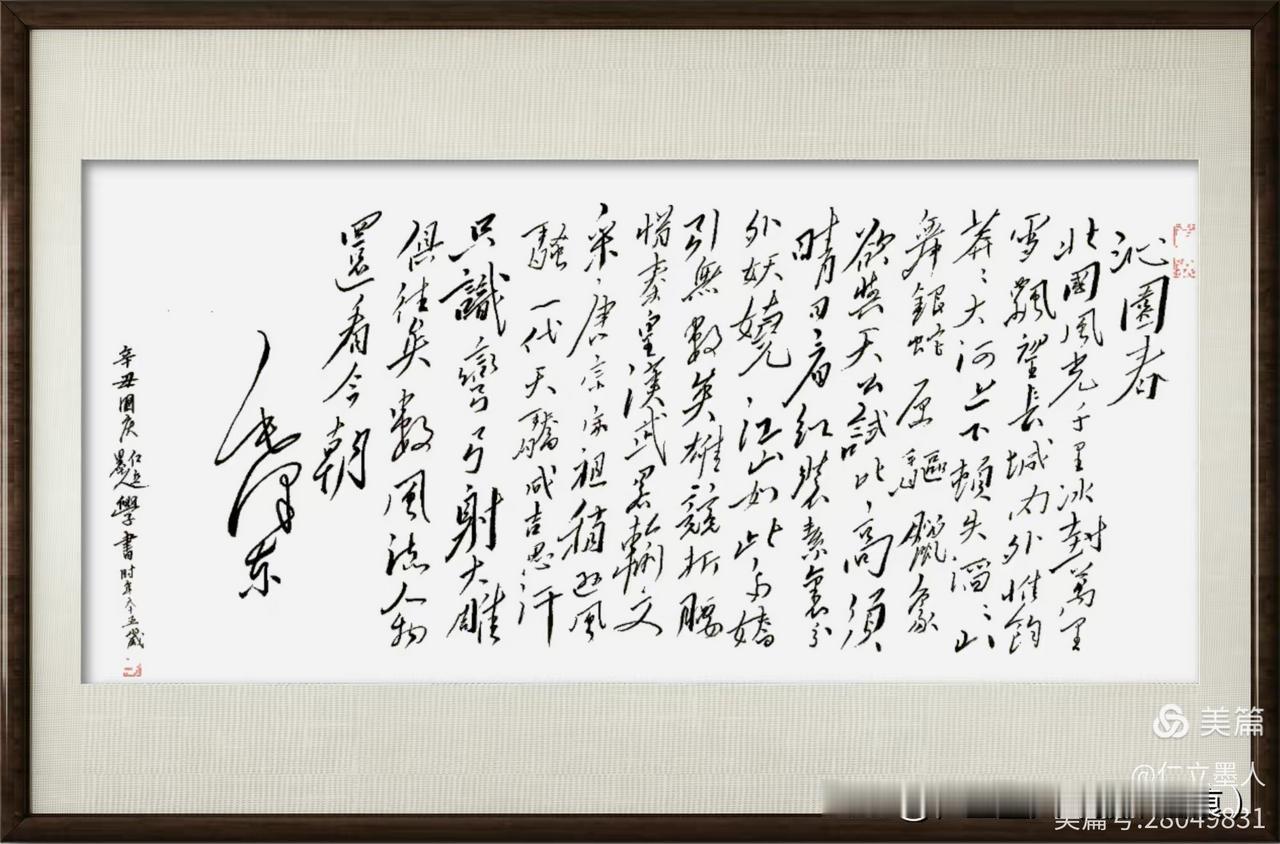 沁園春
北國風光千里冰封萬里
雪飄望長城內外惟餘
莽〻大河上下頓失滔〻山
舞銀蛇原驅臘象
欲與天公試比〻高須
晴日看紅裝素裹分
外妖嬈〻江山如此多嬌
引無數英雄競折腰
惜秦皇漢武略輸文
采〻唐宗宋祖稍遜風
騷一代天驕成吉思汗
只識彎弓射大雕
俱往矣數風流人物
還看今朝
毛澤東
辛丑國慶仁立墨人學書時年六十五歲
美篇
@仁立墨人
美篇号:28049831